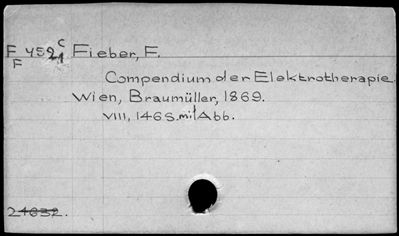 F 452 C Fieber, F.
F 1
Compendium der Elektrotherapie.
Wien, Braumüller, 1869.
VIII, 146 S. mit Abb.
24632.